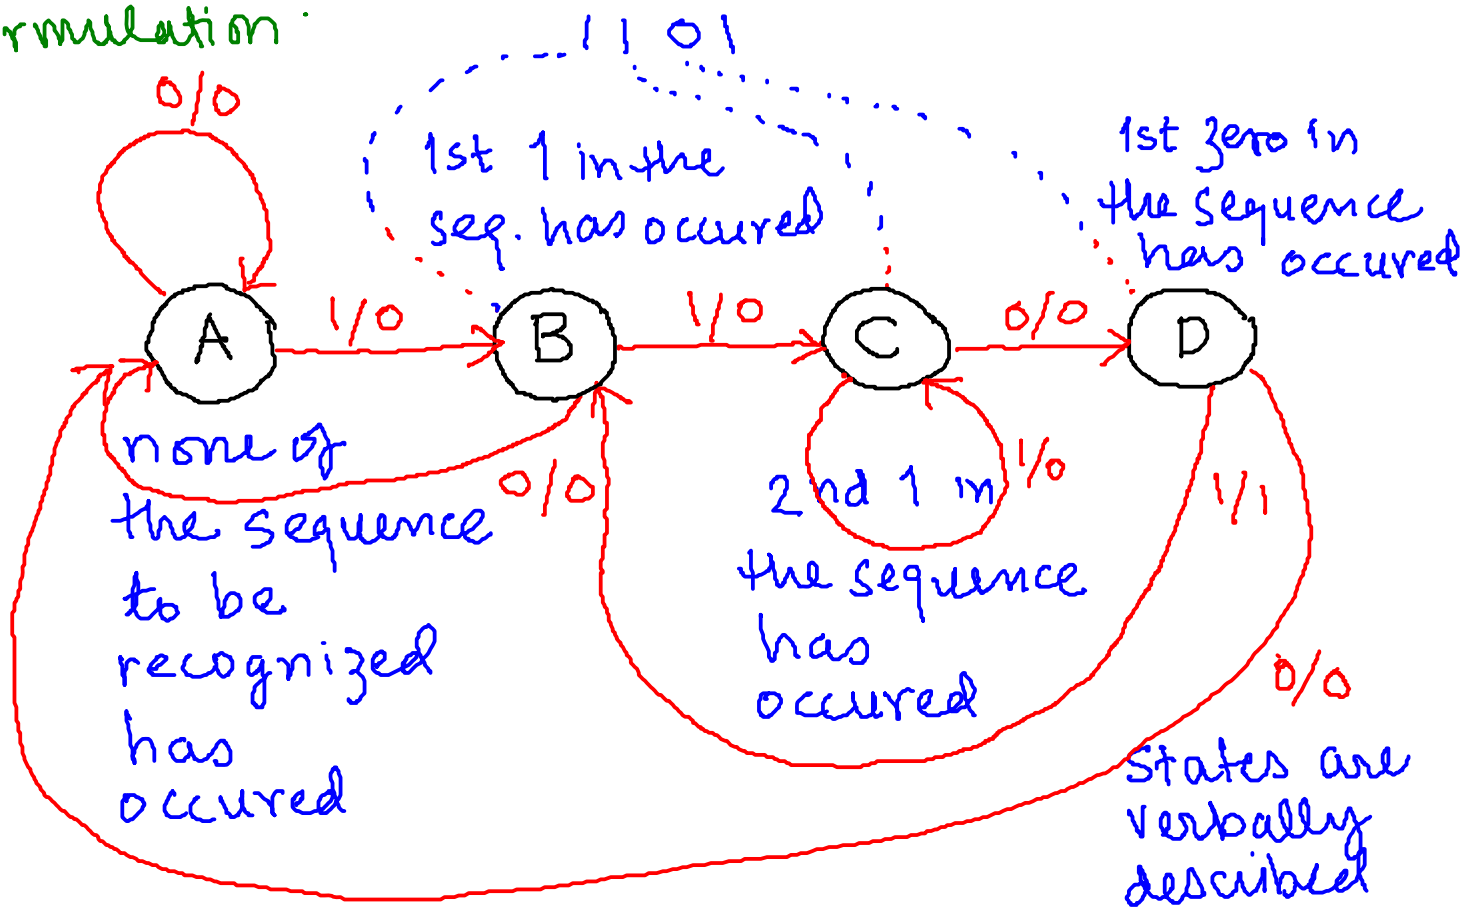 rmulation
1101
0/0
1st 1 in the
seq. has occured
1st zero in
the sequence
has occured
A
1/0
B
1/0
C
0/0
D
none of
the sequence
to be
recognized
has
occured
0/0
2nd 1 in
the sequence
has
occured
1/0
1/1
0/0
States are
verbally
described